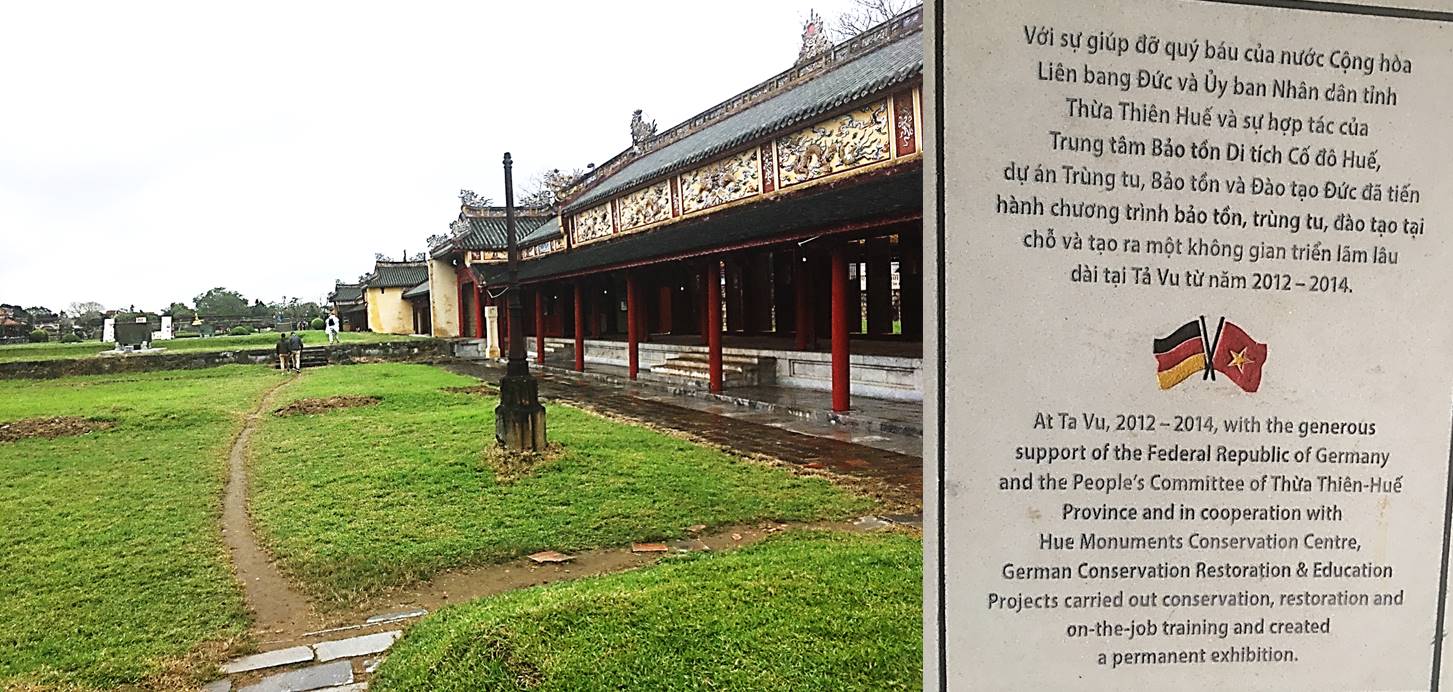 Với sự giúp đỡ quý báu của nước Cộng hòa
Liên bang Đức và Ủy ban Nhân dân tỉnh
Thừa Thiên Huế và sự hợp tác của
Trung tâm Bảo tồn Di tích Cố đô Huế,
dự án Trùng tu, Bảo tồn và Đào tạo Đức đã tiến
hành chương trình bảo tồn, trùng tu, đào tạo tại
chỗ và tạo ra một không gian triển lãm lâu
dài tại Tả Vu từ năm 2012 – 2014.
At Ta Vu, 2012 – 2014, with the generous
support of the Federal Republic of Germany
and the People's Committee of Thừa Thiên-Huế
Province and in cooperation with
Hue Monuments Conservation Centre,
German Conservation Restoration & Education
Projects carried out conservation, restoration and
on-the-job training and created
a permanent exhibition.